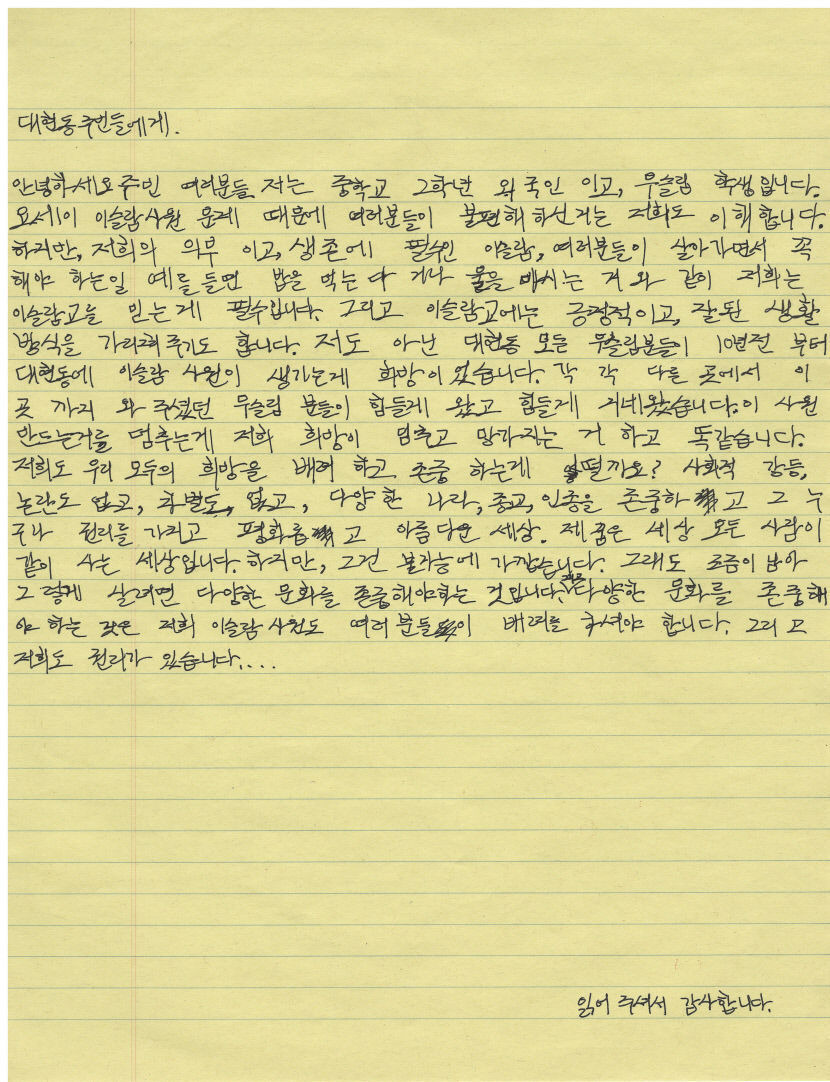 대현동주민들에게.
안녕하세요 주민 여러분들 저는 중학교 2학년 외국인 이고, 무슬림 학생입니다.
요세이 이슬람사원 문제 때문에 여러분들이 불편해 하신거는 저희도 이해합니다.
하지만, 저희의 의무 이고, 생존에 필수인 이슬람, 여러분들이 살아가면서 꼭
해야 하는일 예를 들면 밥을 먹는다 거나 물을 마시는 거 와 같이 저희는
이슬람교를 믿는게 필수입니다. 그리고 이슬람교에는 긍정적이고, 잘된 생활
방식을 가리켜 주기도 합니다. 저도 아닌 대현동 모든 무슬림분들이 10년전 부터
대현동에 이슬람 사원이 생기는게 희망이 있습니다. 각 각 다른 곳에서 이
곳 까지 와 주셨던 무슬림 분들이 힘들게 왔고 힘들게 지내왔습니다. 이 사원
만드는거를 멈추는게 저희 희망이 멈추고 망가지는 거 하고 똑같습니다.
저희도 우리 모두의 희망을 배려 하고 존중 하는게 어떨까요? 사회적 갈등,
논란도 없고, 차별도, 없고, 다양한 나라, 종교, 인종을 존중하고 그 누
구나 권리를 가지고 평화롭고 아름다운 세상. 제 꿈은 세상 모든 사람이
같이 사는 세상입니다. 하지만, 그건 불가능에 가깝습니다. 그래도 조금이 남아
그렇게 살려면 다양한 문화를 존중해야하는 것입니다. 다양한 문화를 존중해
야 하는 것은 저희 이슬람사원도 여러분들이 배려를 하셔야 합니다. 그리고
저희도 권리가 있습니다....
읽어 주셔서 감사합니다.